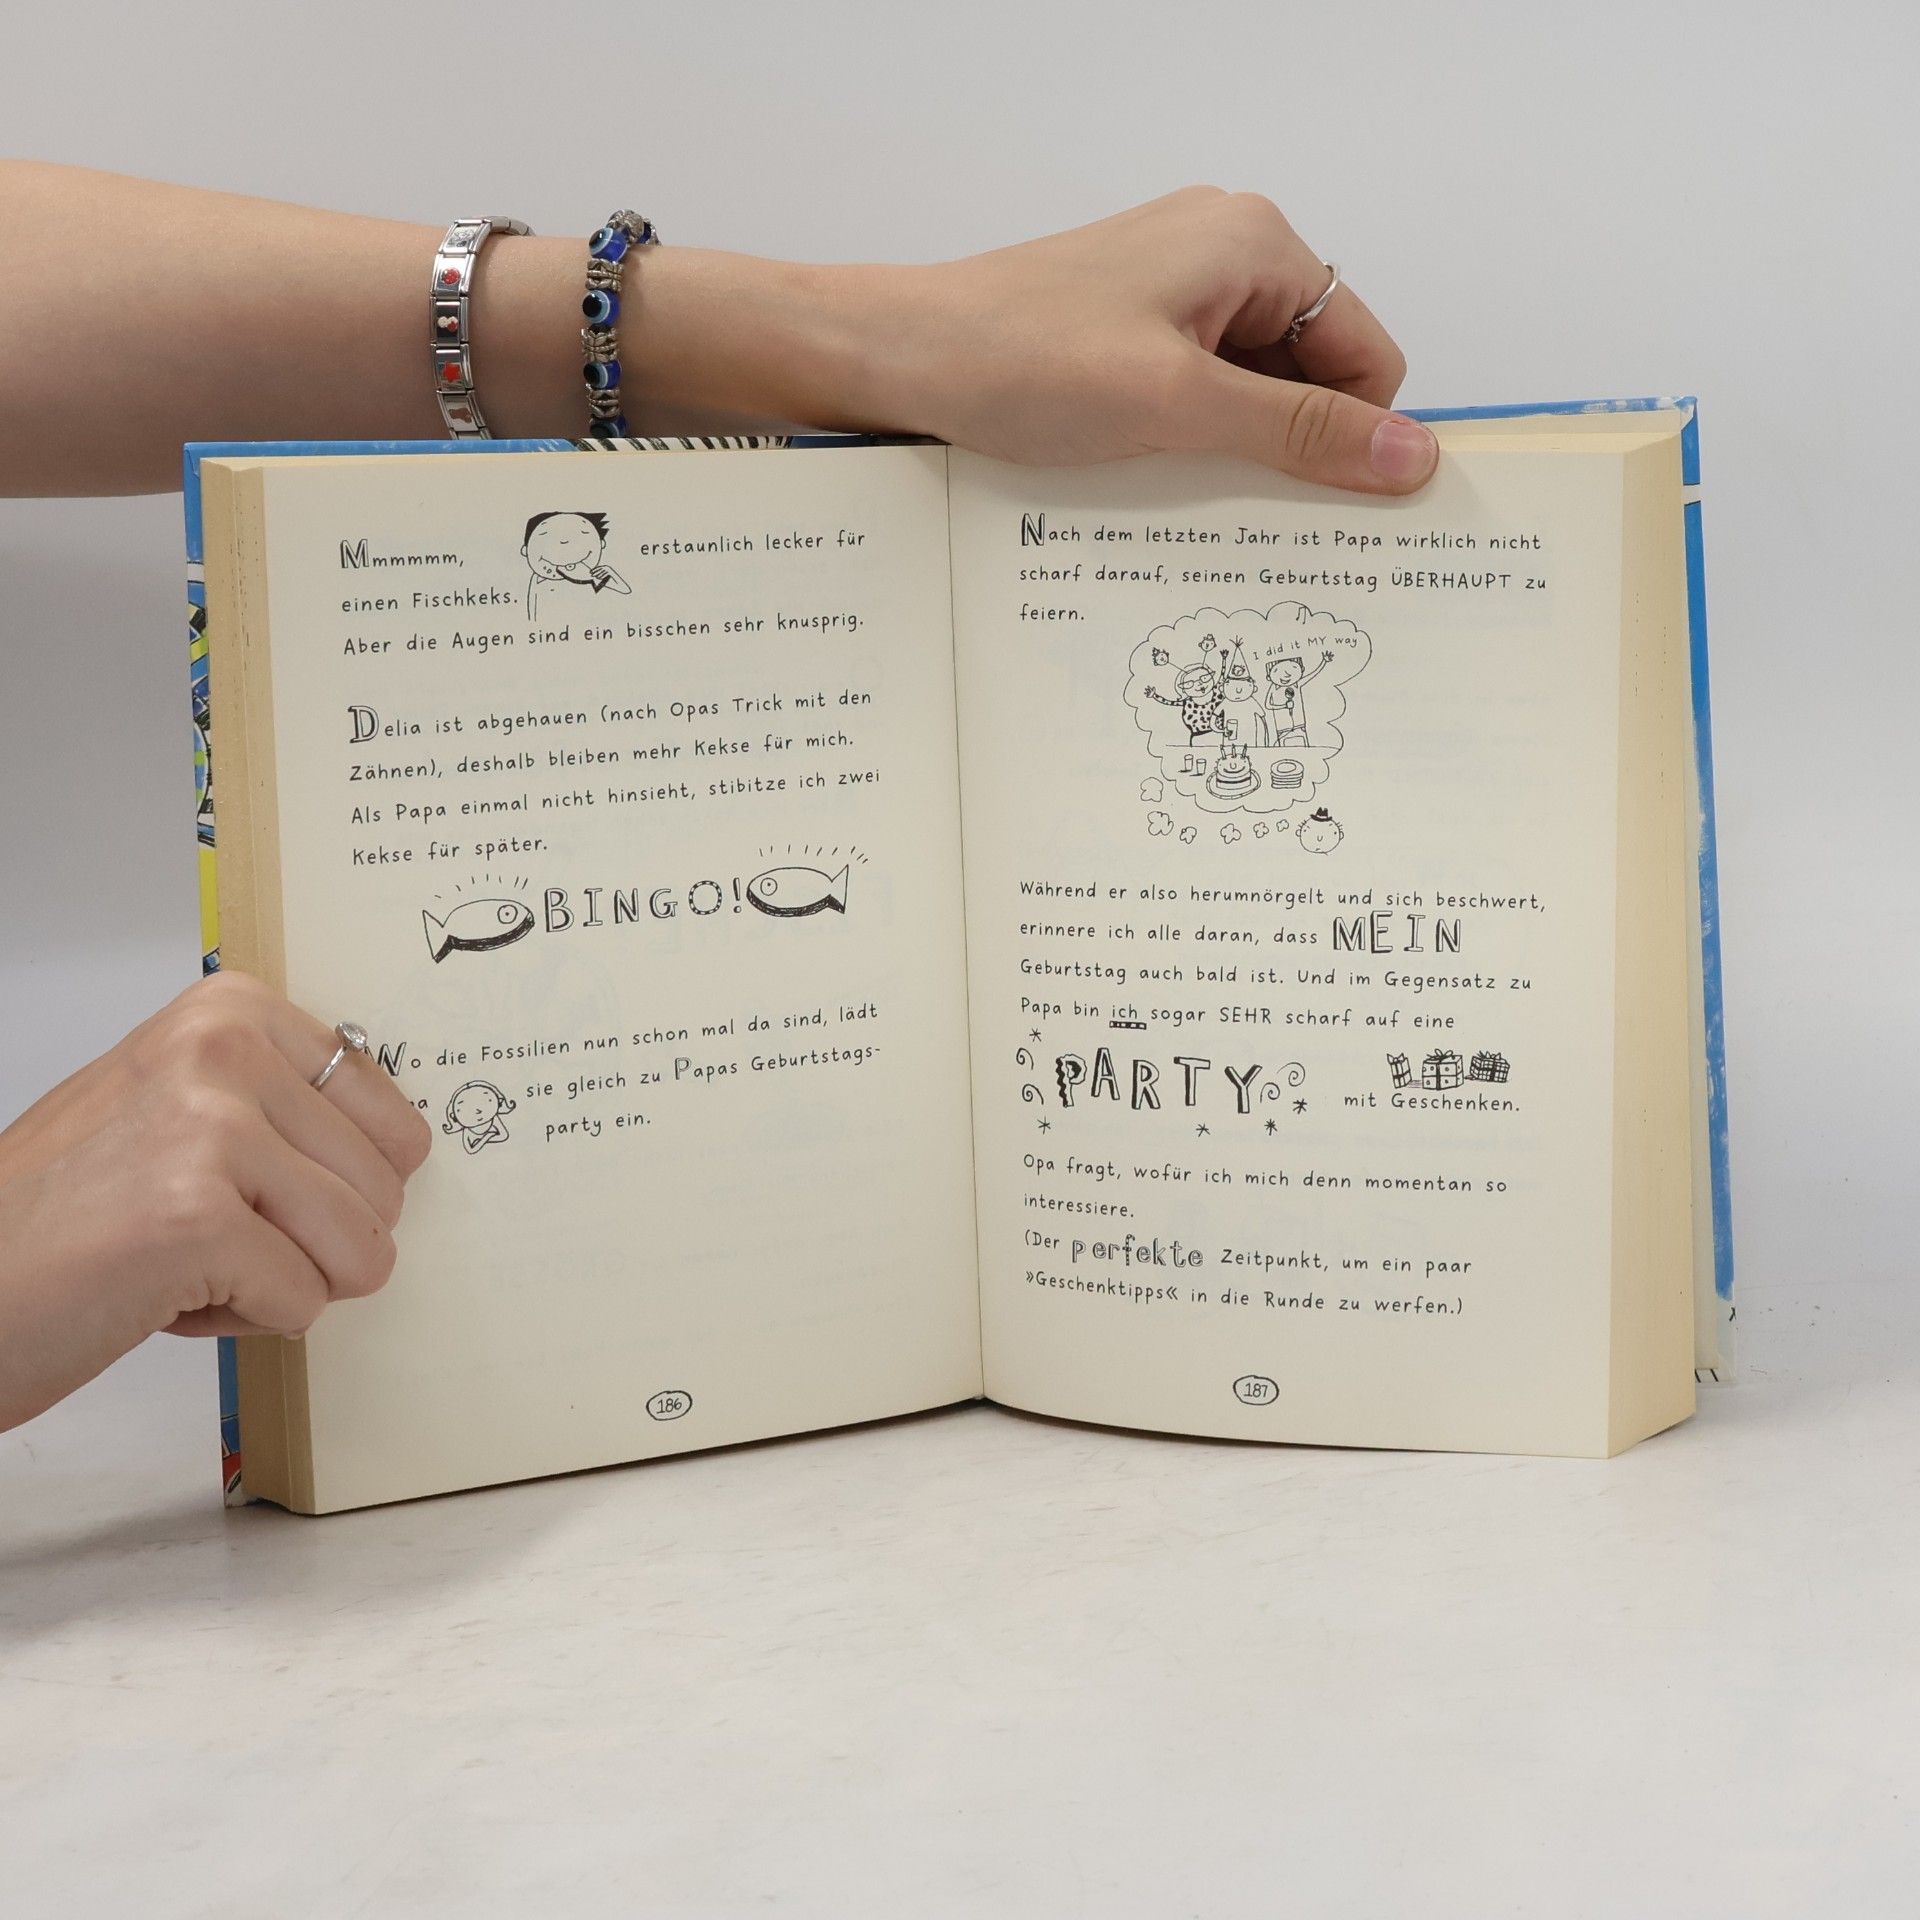 Mmmmmm, erstaunlich lecker für
einen Fischkeks.
Aber die Augen sind ein bisschen sehr knusprig.
Delia ist abgehauen (nach Opas Trick mit den
Zähnen), deshalb bleiben mehr Kekse für mich.
Als Papa einmal nicht hinsieht, stibitze ich zwei
Kekse für später.
BINGO!
Wo die Fossilien nun schon mal da sind, lädt
sie gleich zu Papas Geburtstags-
party ein.
186
Nach dem letzten Jahr ist Papa wirklich nicht
scharf darauf, seinen Geburtstag ÜBERHAUPT zu
feiern.
I did it MY way
Während er also herumnörgelt und sich beschwert,
erinnere ich alle daran, dass MEIN
Geburtstag auch bald ist. Und im Gegensatz zu
Papa bin ich sogar SEHR scharf auf eine
PARTY mit Geschenken.
Opa fragt, wofür ich mich denn momentan so
interessiere.
(Der perfekte Zeitpunkt, um ein paar
»Geschenktipps« in die Runde zu werfen.)
187